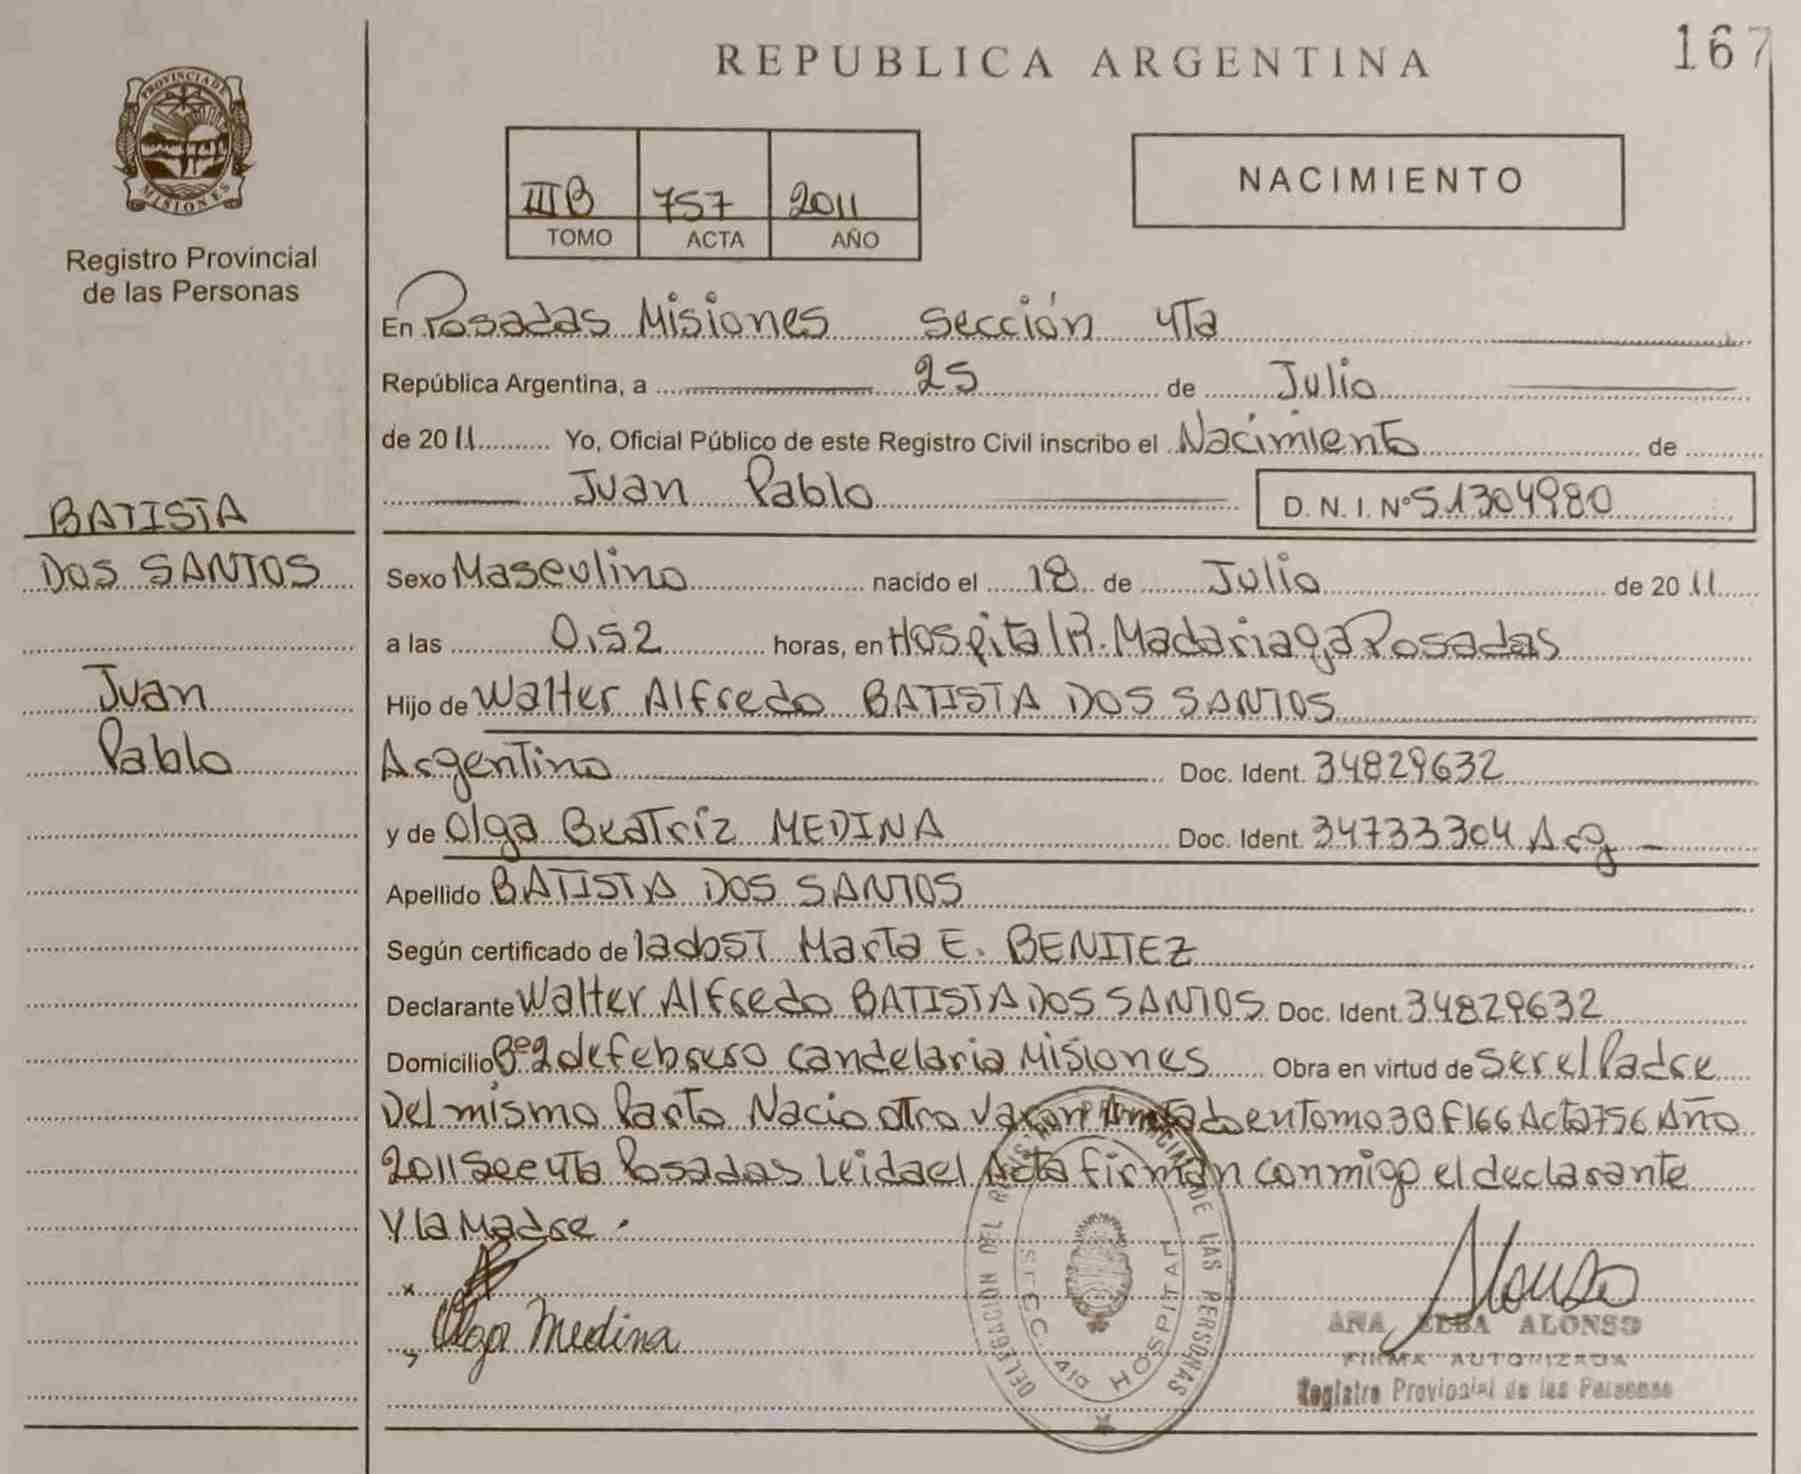 167
REPUBLICA ARGENTINA
PROVINCIA DE
MISIONES
Registro Provincial
de las Personas
IIIB 757 2011
TOMO ACTA AÑO
NACIMIENTO
En Posadas Misiones sección 4Ta
República Argentina, a 25 de Julio
de 2011 Yo, Oficial Público de este Registro Civil inscribo el Nacimiento de
Juan Pablo D. N. I. Nº 51304980
BATISTA
DOS SANTOS
Juan
Pablo
Sexo Masculino nacido el 18 de Julio de 2011
a las 0,52 horas, en Hospital R. Madariaga Posadas
Hijo de Walter Alfredo BATISTA DOS SANTOS
Argentino Doc. Ident. 34829632
y de Olga Beatriz MEDINA Doc. Ident. 34733304 Arg
Apellido BATISTA DOS SANTOS
Según certificado de laobsT Marta E. BENITEZ
Declarante Walter Alfredo BATISTA DOS SANTOS Doc. Ident. 34829632
Domicilio Bº 2 de febrero candelaria Misiones Obra en virtud de ser el Padre
Del mismo Parto Nacio otro varon Anotado en Tomo 3B F166 Acta 756 Año
2011 Sec 4ta Posadas Leida el Acta firman conmigo el declarante
Y la Madre.
Olga Medina
DELEGACION DEL REGISTRO PROVINCIAL DE LAS PERSONAS
SECC. 4ta HOSPITAL
Alonso
ANA ELBA ALONSO
FIRMA AUTORIZADA
Registro Provincial de las Personas